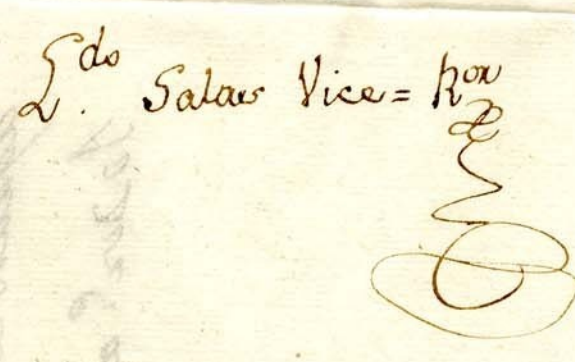 L.do Salas Vice=Ror